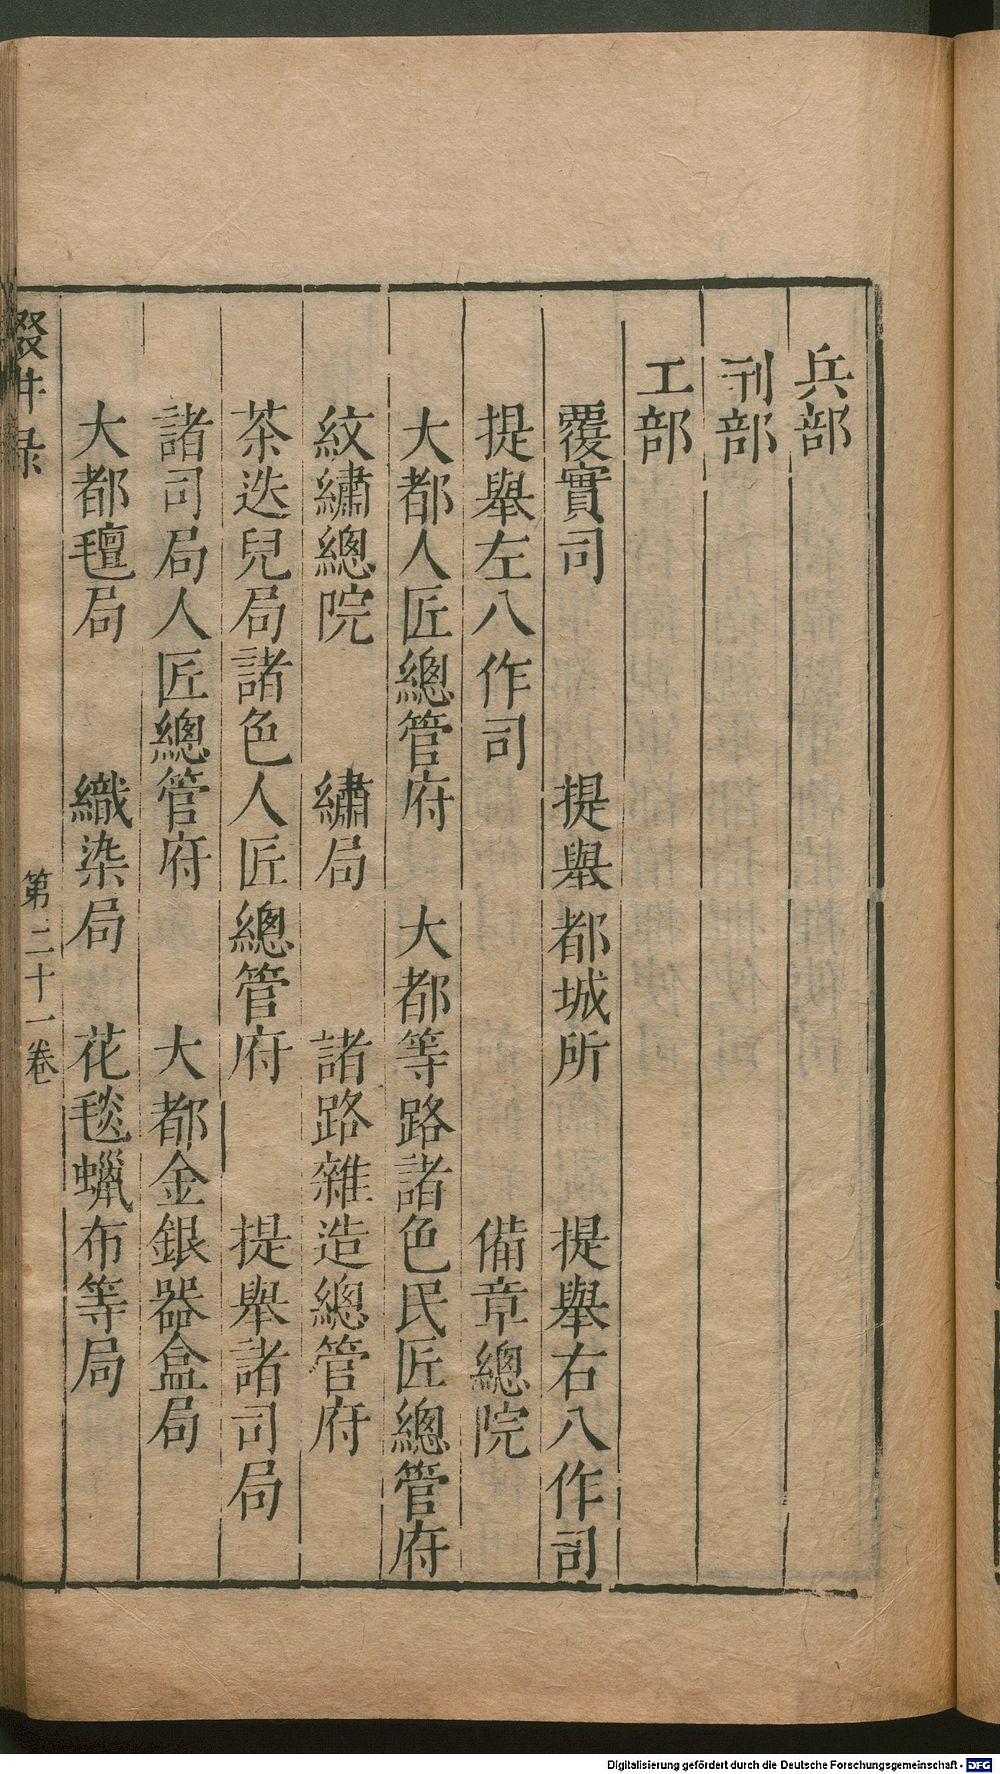 兵部
刑部
工部
覆實司　提舉都城所　提舉右八作司
提舉左八作司　備章總院
大都人匠總管府　大都等路諸色民匠總管府
紋繡總院　繡局　諸路雜造總管府
茶迭兒局諸色人匠總管府　提舉諸司局
諸司局人匠總管府　大都金銀器盒局
大都氊局　織染局　花毯蠟布等局
第二十一卷
Digitalisierung gefördert durch die Deutsche Forschungsgemeinschaft - DFG